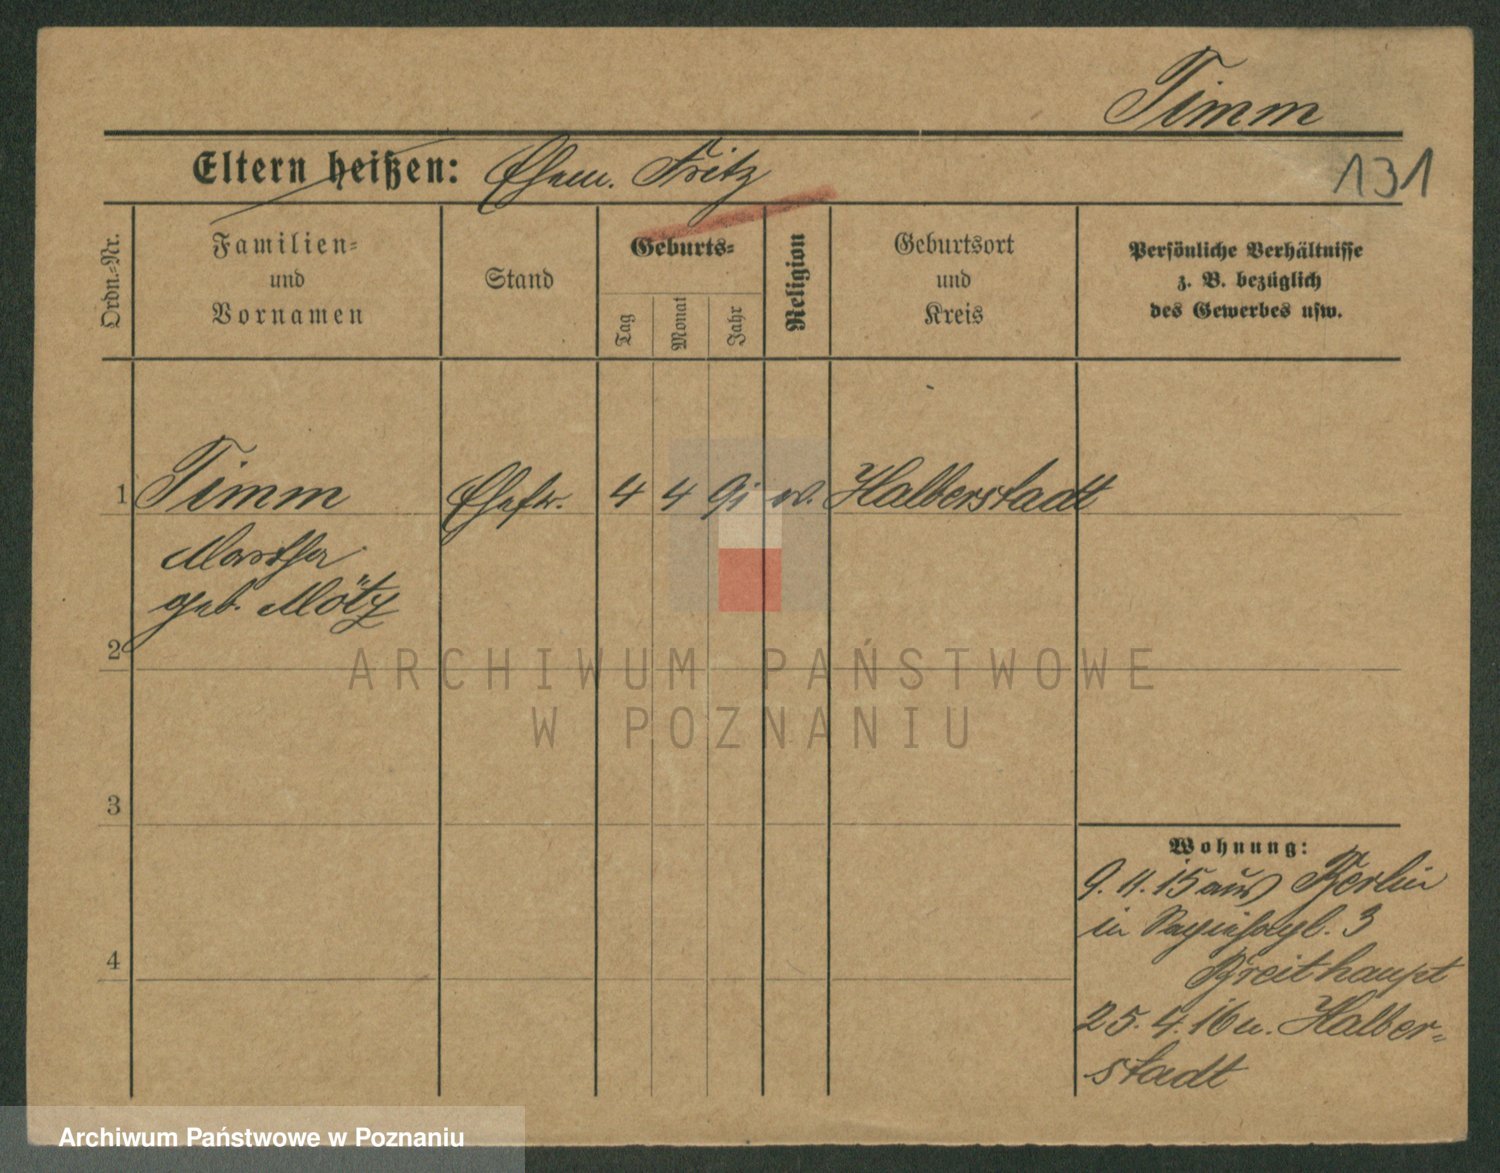 Timm
131
Eltern heißen: Ehem. Fritz
Ordn.-Nr.
Familien-
und
Vornamen
Stand
Geburts-
Tag
Monat
Jahr
Religion
Geburtsort
und
Kreis
Persönliche Verhältnisse
z. B. bezüglich
des Gewerbes usw.
1 Timm Ehefr. 4 4 91 ev. Halberstadt
Martha
geb. Mötz
2
ARCHIWUM PAŃSTWOWE
W POZNANIU
3
Wohnung:
9. 11. 15 aus Berlin
in 3
4
Breithaupt
25. 4. 16 n. Halber-
stadt
Archiwum Państwowe w Poznaniu